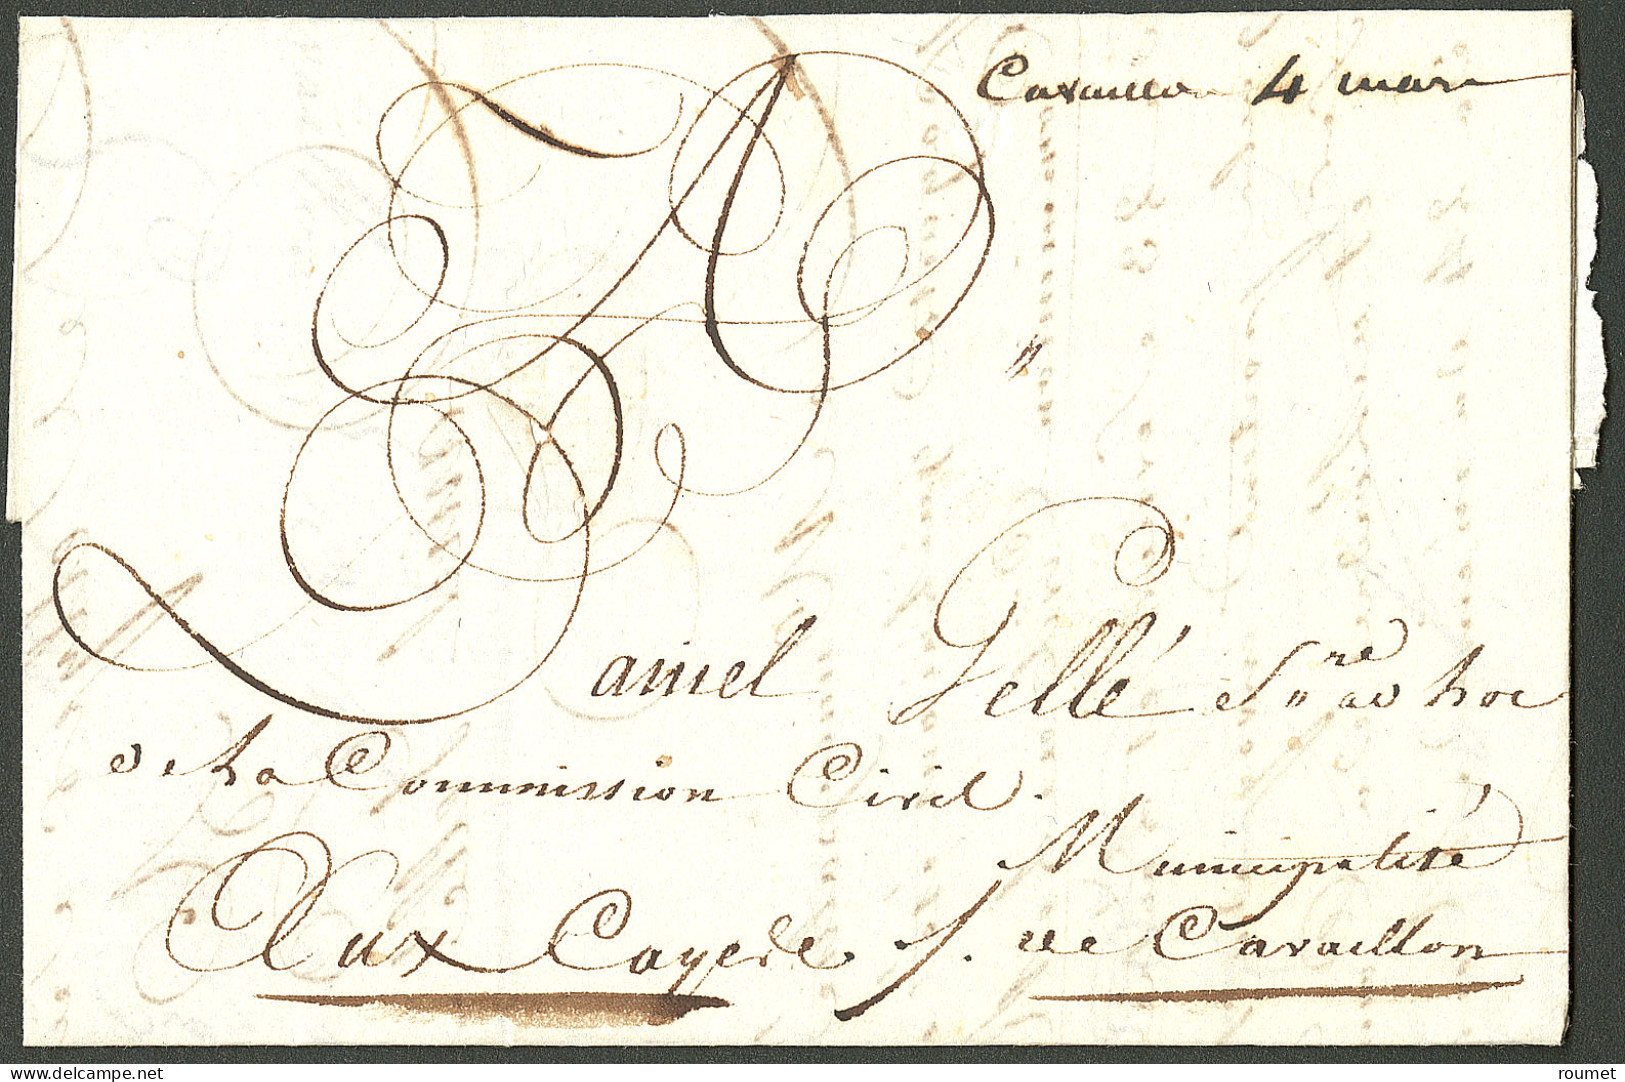 Cavaillon 4 mars
A
"
Daniel Gellé S're ad hoc
de La Commission Civil.
Municipalité
Aux Cayes /. de Cavaillon
roumet
delcampe.net